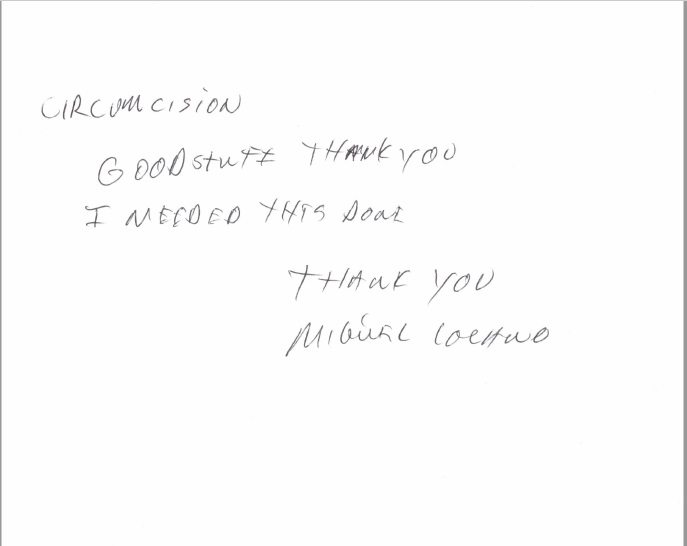 CIRCUMCISION
GOOD STUFF THANK YOU
I NEEDED THIS DONE
THANK YOU
MIGUEL